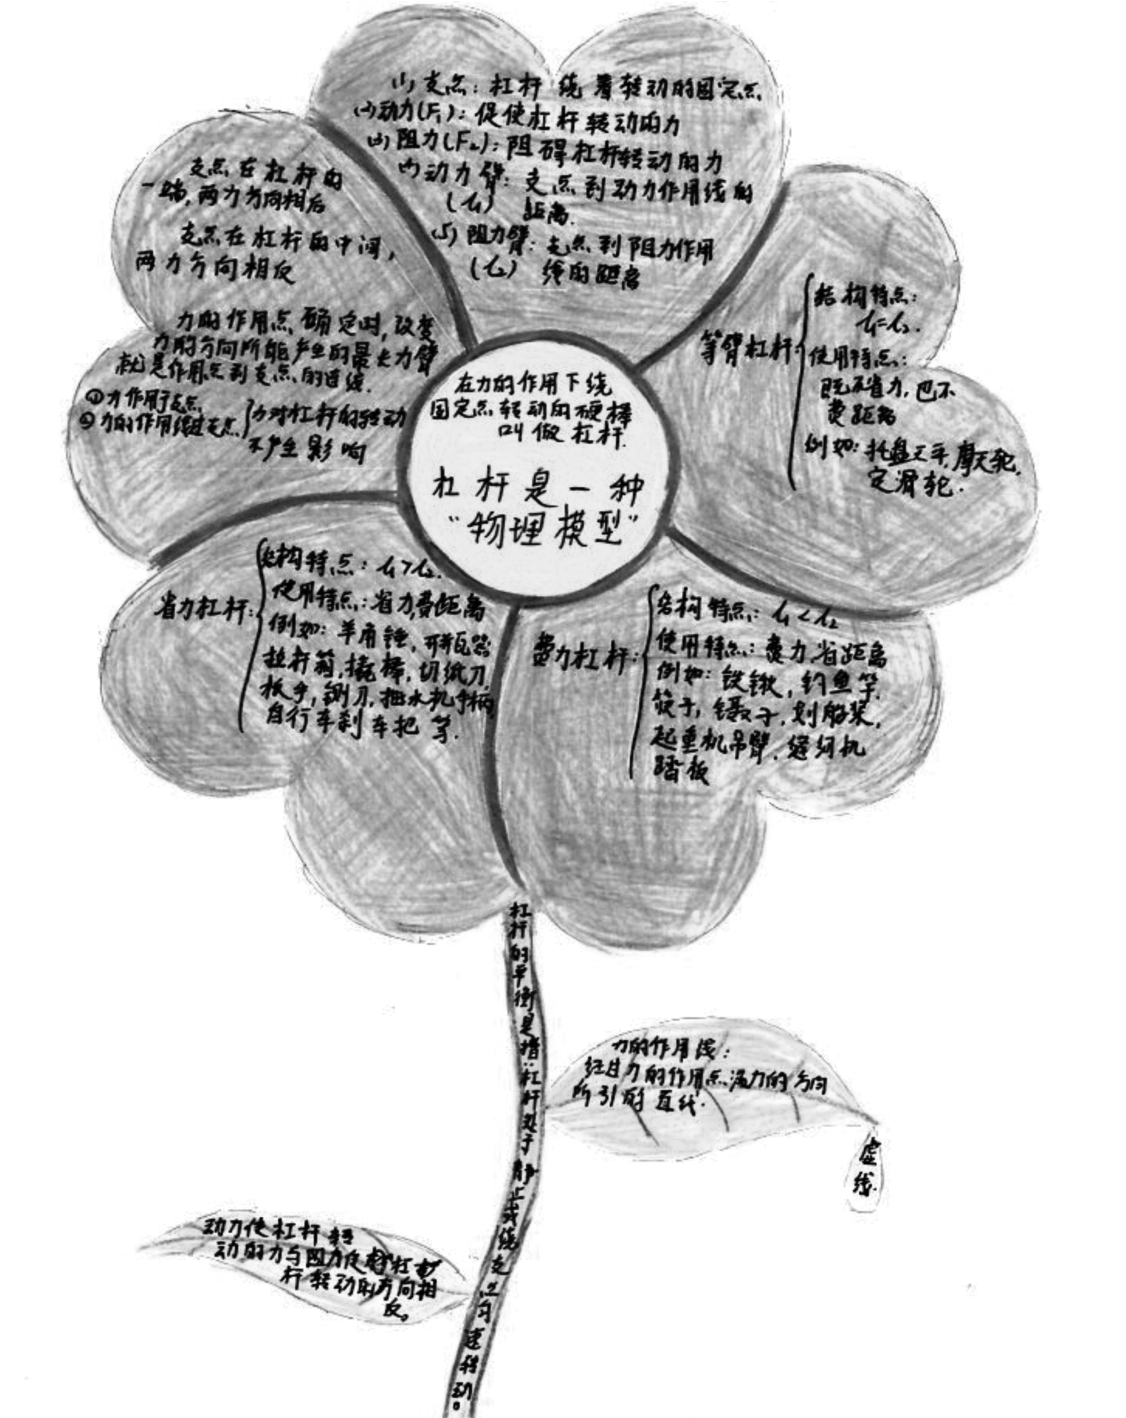 (1) 支点: 杠杆 绕 着转动的固定点
(2)动力(F₁): 促使杠杆转动的力
(3) 阻力(F₂): 阻碍杠杆转动的力
(4)动力臂: 支点到动力作用线的
(l₁) 距离.
(5) 阻力臂: 支点到阻力作用
(l₂) 线的距离
支点在杠杆的
一端,两力方向相反
支点在杠杆的中间,
两力方向相反
力的作用点确定时,改变
力的方向所能产生的最长力臂
就是作用点到支点的连线.
①力作用于支点
②力的作用线过支点
}力对杠杆的转动
不产生影响
在力的作用下绕
固定点转动的硬棒
叫做杠杆.
杠杆是一种
“物理模型”
等臂杠杆
结构特点:
l₁=l₂.
使用特点:
既不省力,也不
费距离
例如: 托盘天平,摩天轮,
定滑轮.
省力杠杆:
结构特点: l₁>l₂.
使用特点: 省力,费距离
例如: 羊角锤,开瓶器
拉杆箱,撬棒,切纸刀,
板手,铡刀,抽水机手柄,
自行车刹车把 等.
费力杠杆:
结构特点: l₁<l₂
使用特点: 费力,省距离
例如: 铁锹,钓鱼竿,
筷子,镊子,划船桨,
起重机吊臂,缝纫机
踏板
杠杆的平衡是指:杠杆处于静止或绕支点匀速转动。
力的作用线:
经过力的作用点沿力的方向
所引的直线.
虚线.
动力使杠杆转
动的力与阻力使杠
杆转动的方向相
反。